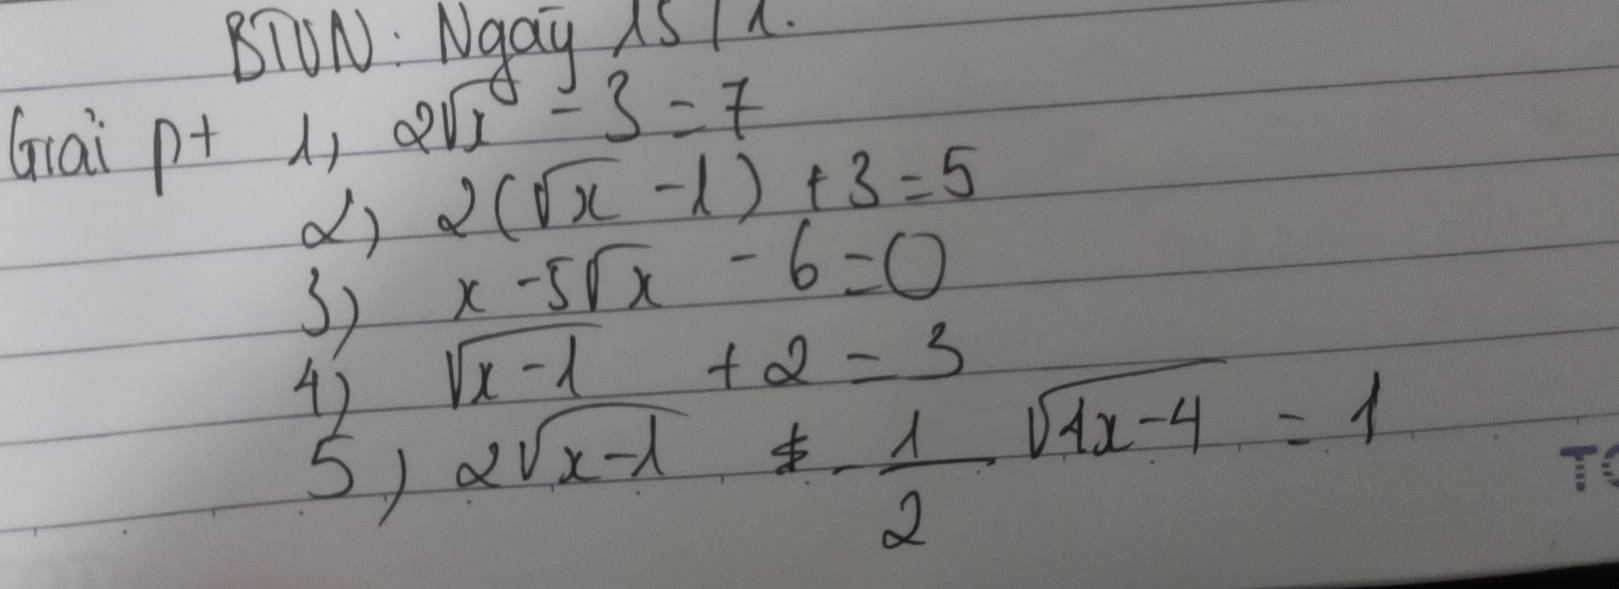 BTVN: Ngày 15/1.
Giải pt 1, 2√x - 3 = 7
2) 2(√x - 1) + 3 = 5
3) x - 5√x - 6 = 0
4) √(x-1) + 2 = 3
5) 2√(x-1) - 1/2 √(4x-4) = 1